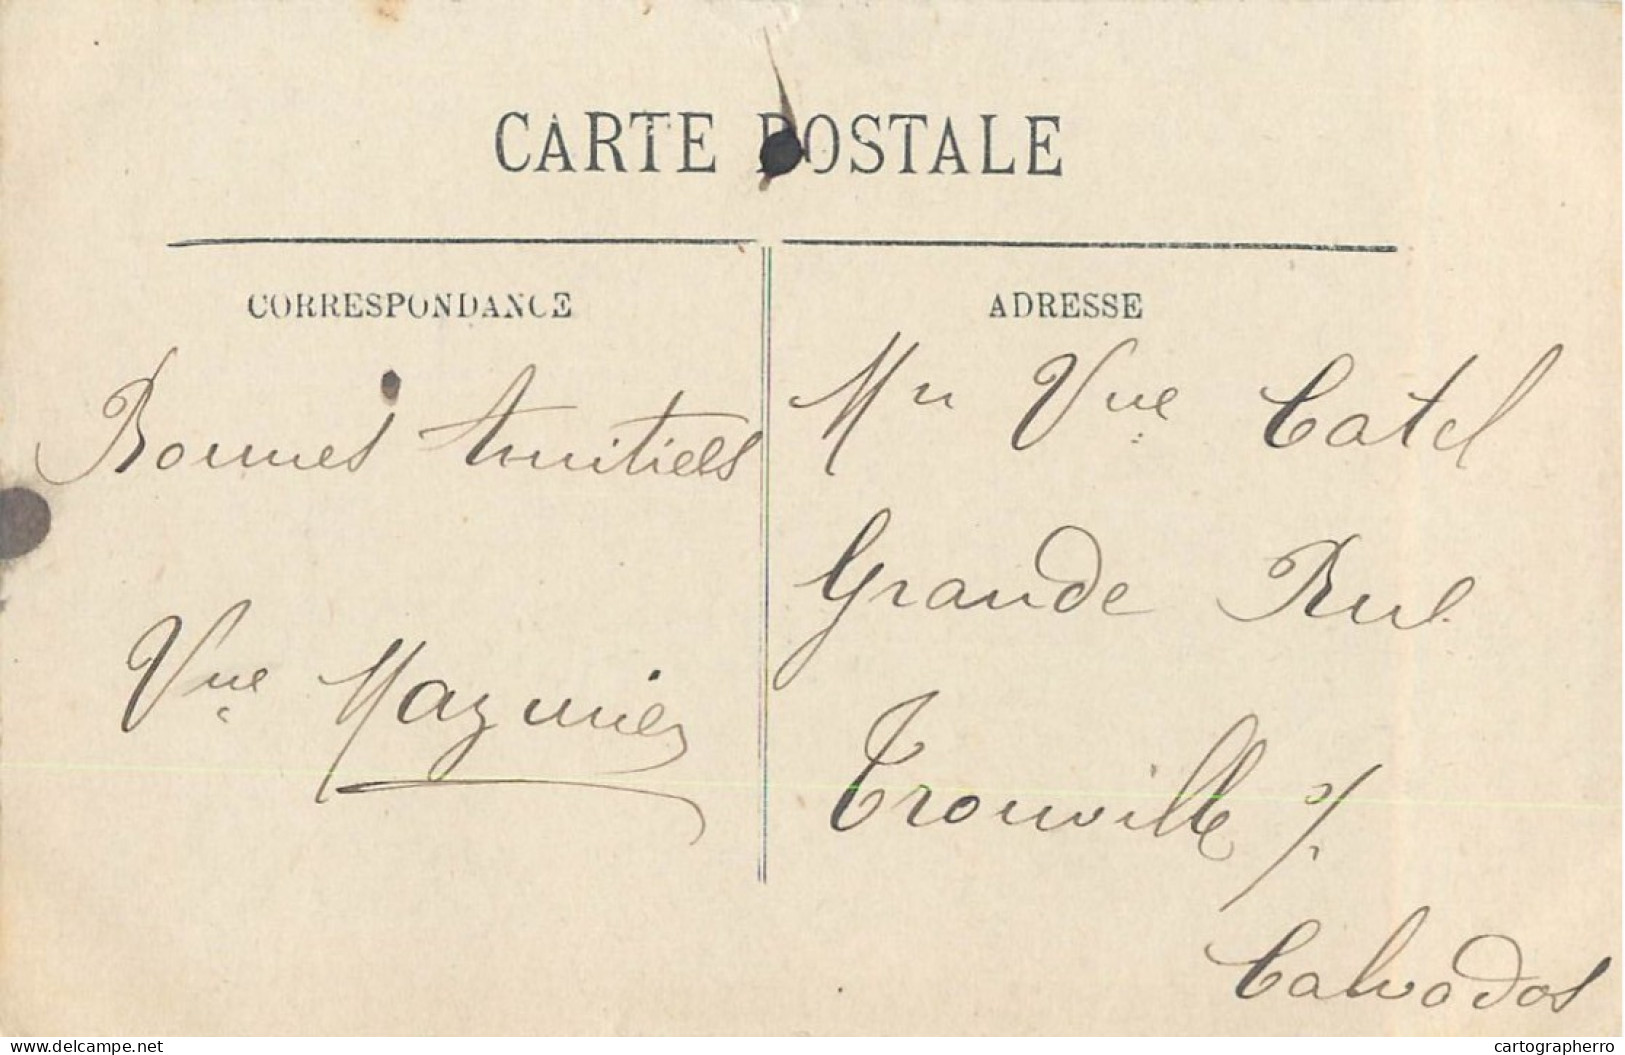 CARTE POSTALE
CORRESPONDANCE
Bonnes Amitiels
Vue Mazurier
ADRESSE
Vue Catel
Grande Rue
Trouville s/
Calvados
www.delcampe.net
cartographerro